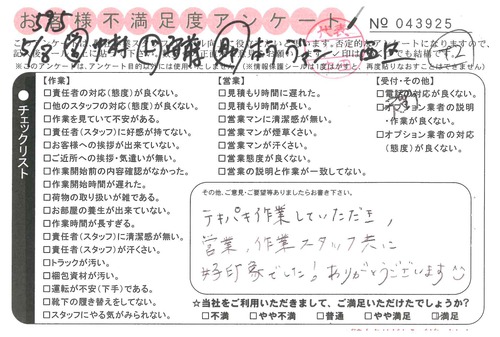 お客様不満足度アンケート
№ 043925
5/8
※このアンケートは、アンケート目的以外には使用いたしません。(※情報保護シールは1度はがすと、再度貼りなおすことはできません)
チェックリスト
【作業】
□責任者の対応(態度)が良くない。
□他のスタッフの対応(態度)が良くない。
□作業を見ていて不安がある。
□責任者(スタッフ)に好感が持てない。
□お客様への挨拶が出来ていない。
□ご近所への挨拶・気遣いが無い。
□作業開始前の内容確認がなかった。
□作業開始時間が遅れた。
□荷物の取り扱いが雑である。
□お部屋の養生が出来ていない。
□作業時間が長すぎる。
□責任者(スタッフ)に清潔感が無い。
□責任者(スタッフ)が汗くさい。
□トラックが汚い。
□梱包資材が汚い。
□運転が不安(下手)である。
□靴下の履き替えをしてない。
□スタッフにやる気がみられない。
【営業】
□見積もりに遅れた。
□見積もり時間が長い。
□営業マンに清潔感が無い。
□営業マンが煙草くさい。
□営業マンが汗くさい。
□営業態度が良くない。
□営業の説明と作業が一致してない。
【受付・その他】
□電話の対応が良くない。
□オプション業者の説明・作業が良くない。
□オプション業者の対応(態度)が良くない。
その他、ご意見・ご要望等ありましたらお書き下さい。
テキパキ作業していただき、
営業、作業スタッフ共に
好印象でした！ありがとうございます
☆当社をご利用いただきまして、ご満足いただけたでしょうか？
□不満 □やや不満 □普通 □やや満足 □満足